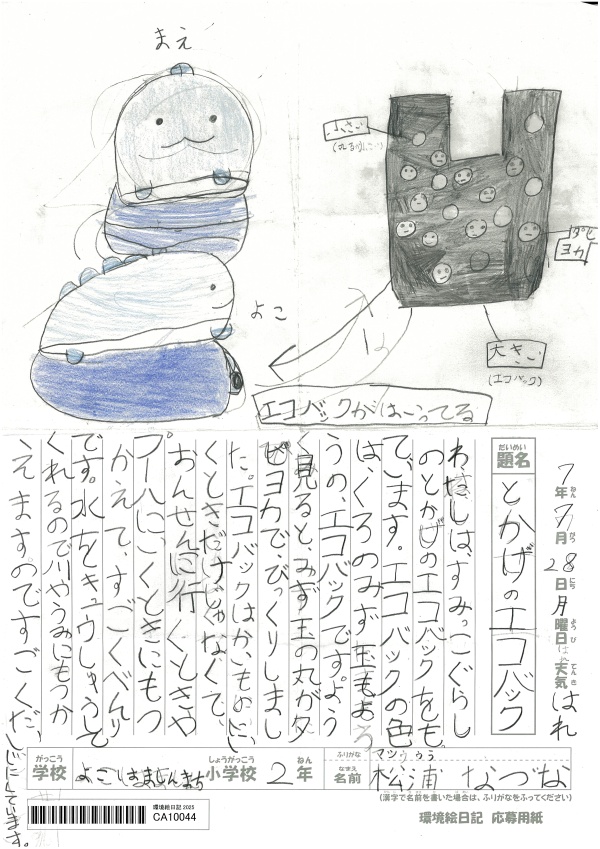 まえ
よこ
小さい
大きい
(エコバック)
エコバックがはいってる
7年7月28日月曜日 天気はれ
ねん がつ にち ようび てんき
だいめい
題名 とかげのエコバック
わたしは、すみっこぐらし
のとかげのエコバックをも
て、います。エコバックの色
は、くろのみず玉もよ
うの、エコバックです。よう
く見ると、みず玉の丸がタ
ピヨカで、びっくりしまし
た。エコバックはかいものにい
くときだけじゃなくて、
おんせんに行くときや
プールにいくときにもつ
かえて、すごくべんり
です。水をキュウしゅうして
くれるので川やうみにもつか
えますのですごくだい
じにしてます。
がっこう しょうがっこう ねん
学校 小学校 2年
ふりがな マツウラ
なまえ
名前 松浦 なづな
(漢字で名前を書いた場合は、ふりがなをふってください)
環境絵日記 2025
CA10044
環境絵日記 応募用紙